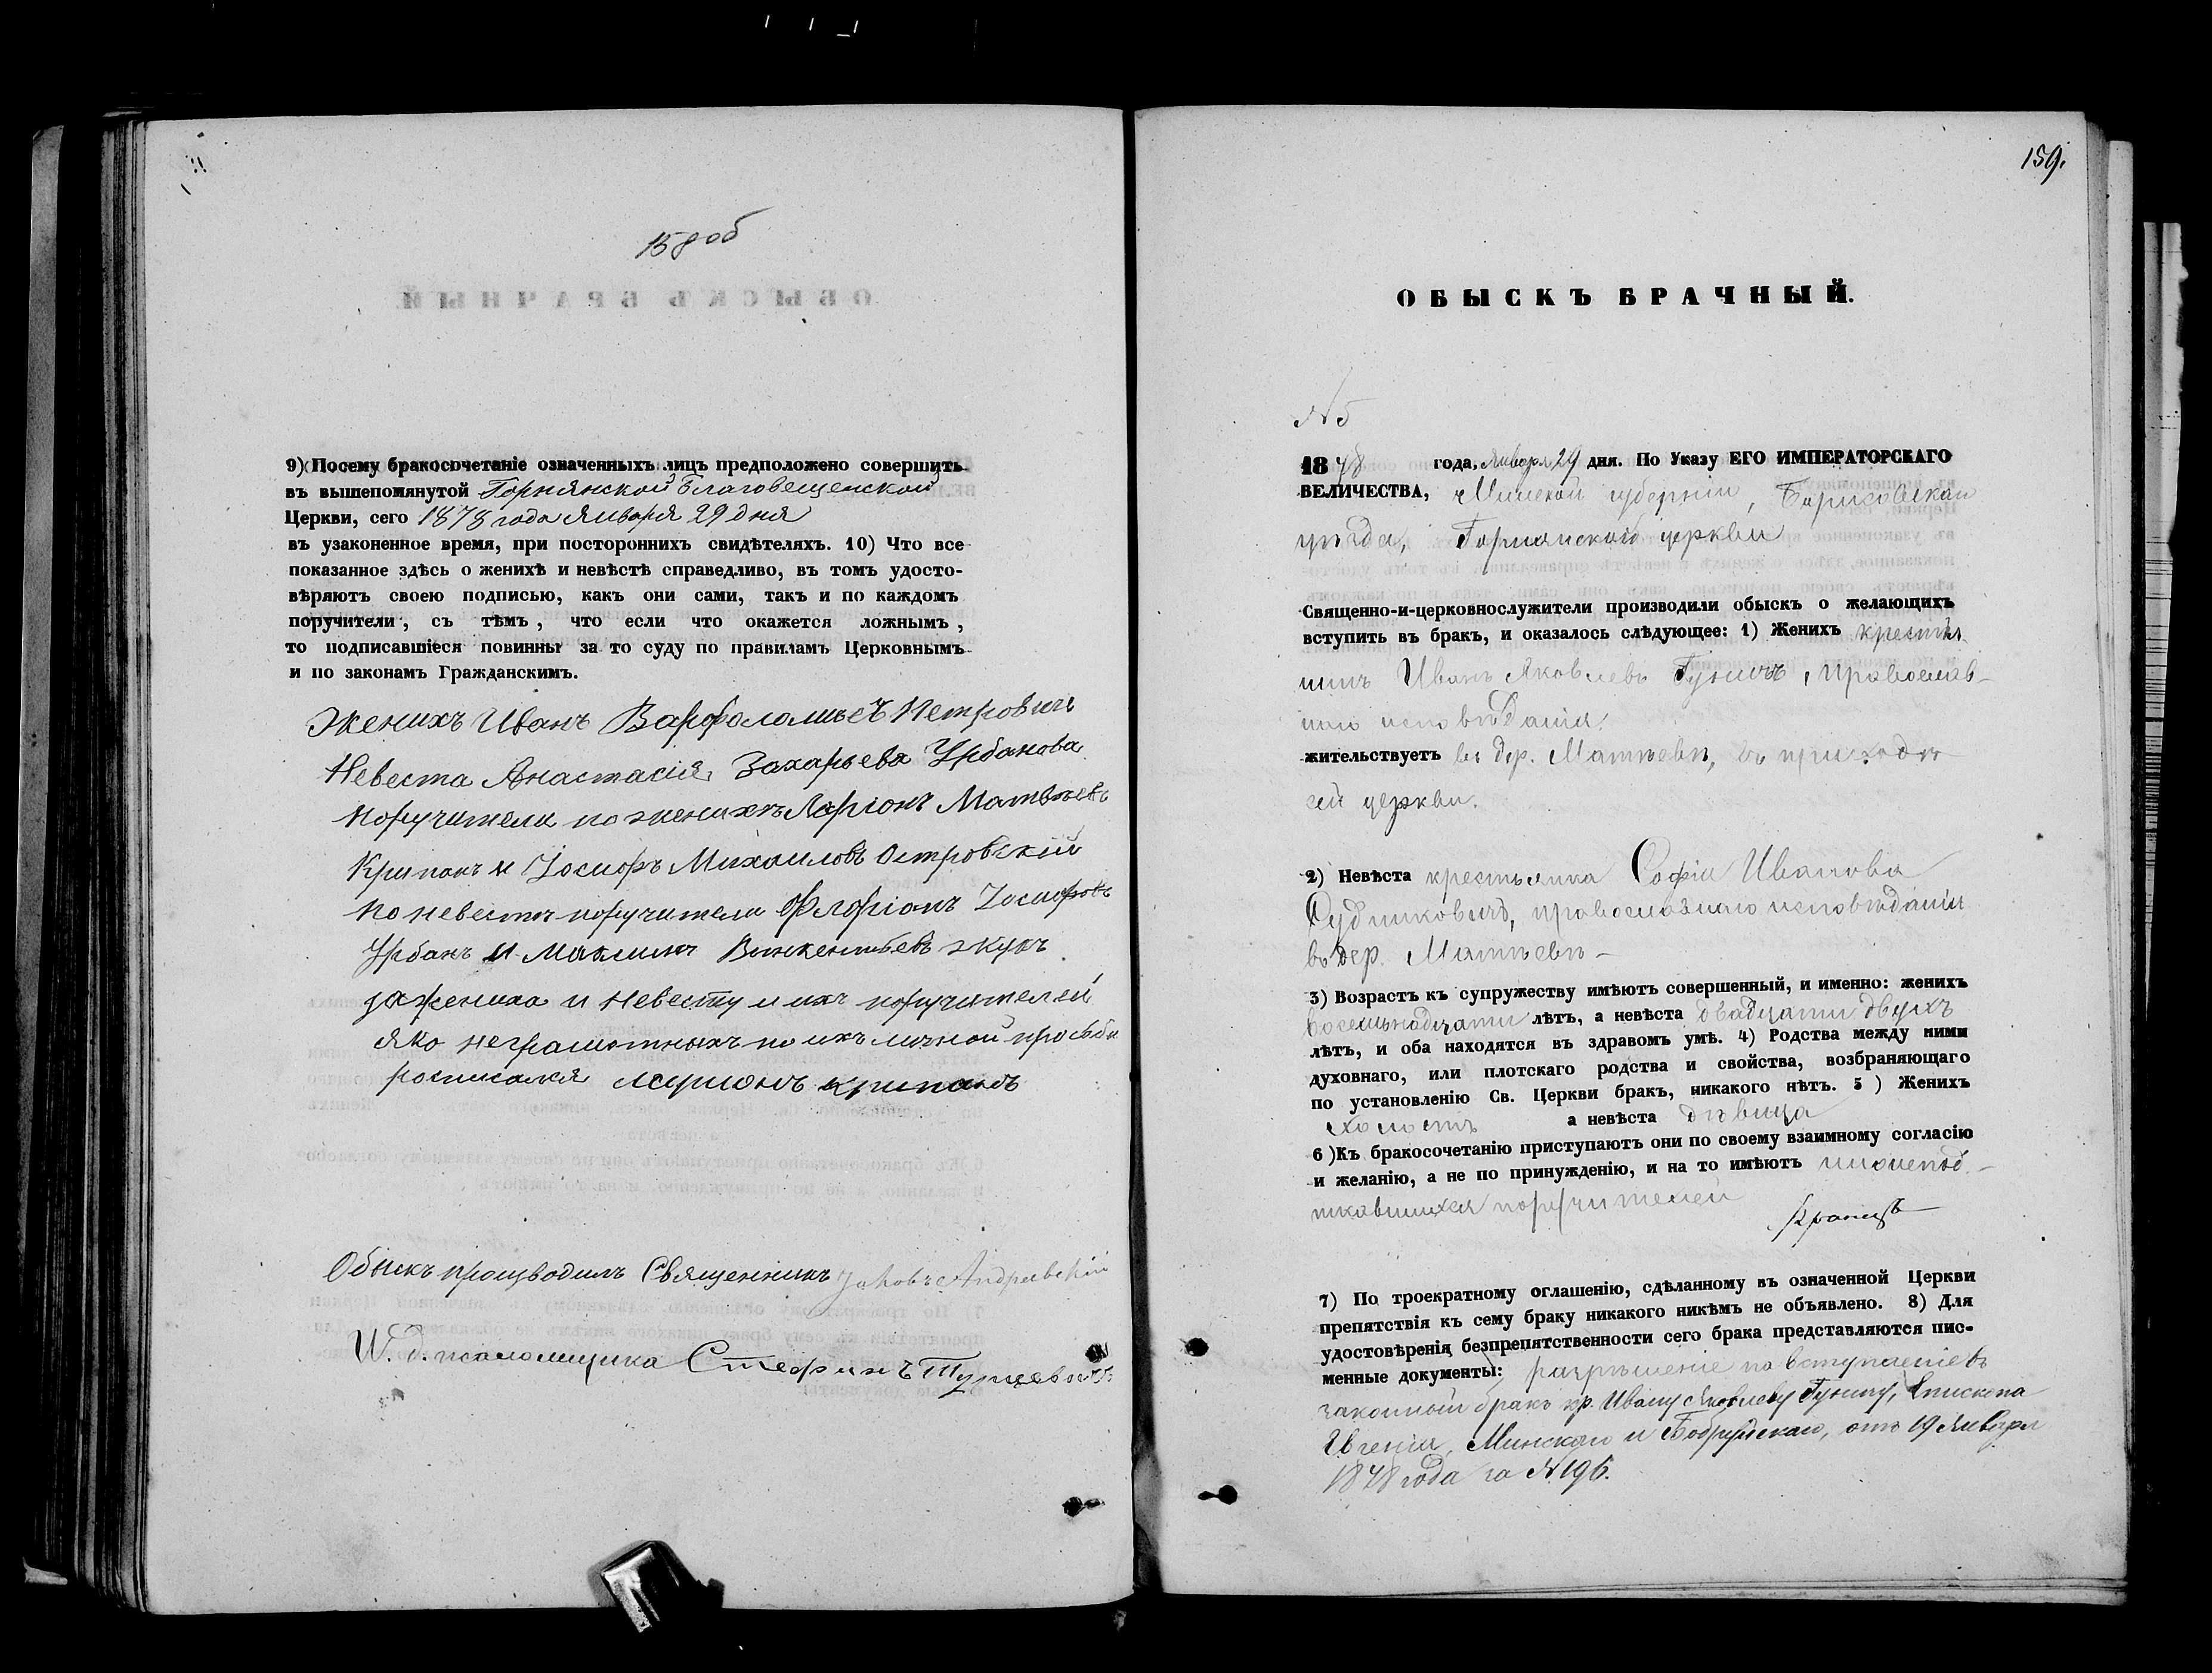 158 об
9) Посему бракосочетаніе означенныхъ лицъ предположено совершить
въ вышепомянутой Горнянской Благовещенской
Церкви, сего 1878 года Января 29 дня
въ узаконенное время, при постороннихъ свидѣтеляхъ. 10) Что все
показанное здѣсь о женихѣ и невѣстѣ справедливо, въ томъ удосто-
вѣряютъ своею подписью, какъ они сами, такъ и по каждомъ
поручители, съ тѣмъ, что если что окажется ложнымъ,
то подписавшіеся повинны за то суду по правиламъ Церковнымъ
и по законамъ Гражданскимъ.
Женихъ Иванъ Варфоломѣевъ Петровичъ
Невеста Анастасія Захарьева Урбанова
Поручители по женихѣ Ларіонъ Матвѣевъ
Крипанъ и Іосифъ Михаиловъ Островскій
по невестѣ поручители Флоріанъ Іосифовъ
Урбанъ и Винкентьевъ Жукъ
за жениха и невесту и ихъ поручителей
яко неграмотныхъ по ихъ личной просьбѣ
росписался Ларионъ Крипанъ
Обыскъ производилъ Священникъ Іаковъ Андреевскій
И. д. псаломщика Стефанъ
159.
ОБЫСКЪ БРАЧНЫЙ.
№ 5
1878 года, Января 29 дня. По Указу ЕГО ИМПЕРАТОРСКАГО
ВЕЛИЧЕСТВА, Минской губерніи, Борисовскаго
уѣзда, Горнянской церкви
Священно-и-церковнослужители производили обыскъ о желающихъ
вступить въ бракъ, и оказалось слѣдующее: 1) Женихъ крестья-
нинъ Иванъ Яковлевъ Гуничъ, православ-
наго исповѣданія
жительствуетъ въ дер. Матѣевѣ, въ приходѣ
сей церкви.
2) Невѣста крестьянка Софія Иванова
православнаго исповѣданія
въ дер. Матѣевѣ
3) Возрастъ къ супружеству имѣютъ совершенный, и именно: женихъ
восемьнадцати лѣтъ, а невѣста двадцати двухъ
лѣтъ, и оба находятся въ здравомъ умѣ. 4) Родства между ними
духовнаго, или плотскаго родства и свойства, возбраняющаго
по установленію Св. Церкви бракъ, никакого нѣтъ. 5) Женихъ
холостъ а невѣста дѣвица
6) Къ бракосочетанію приступаютъ они по своему взаимному согласію
и желанію, а не по принужденію, и на то имѣютъ нижепод-
писавшихся поручителей
7) По троекратному оглашенію, сдѣланному въ означенной Церкви
препятствія къ сему браку никакого никѣмъ не объявлено. 8) Для
удостовѣренія безпрепятственности сего брака представляются пис-
менные документы: разрѣшеніе на вступленіе въ
законный бракъ кр. Ивану Яковлеву Гуничу, Епископа
Евгенія, Минскаго и Бобруйскаго, отъ 19 Января
1878 года за № 196.